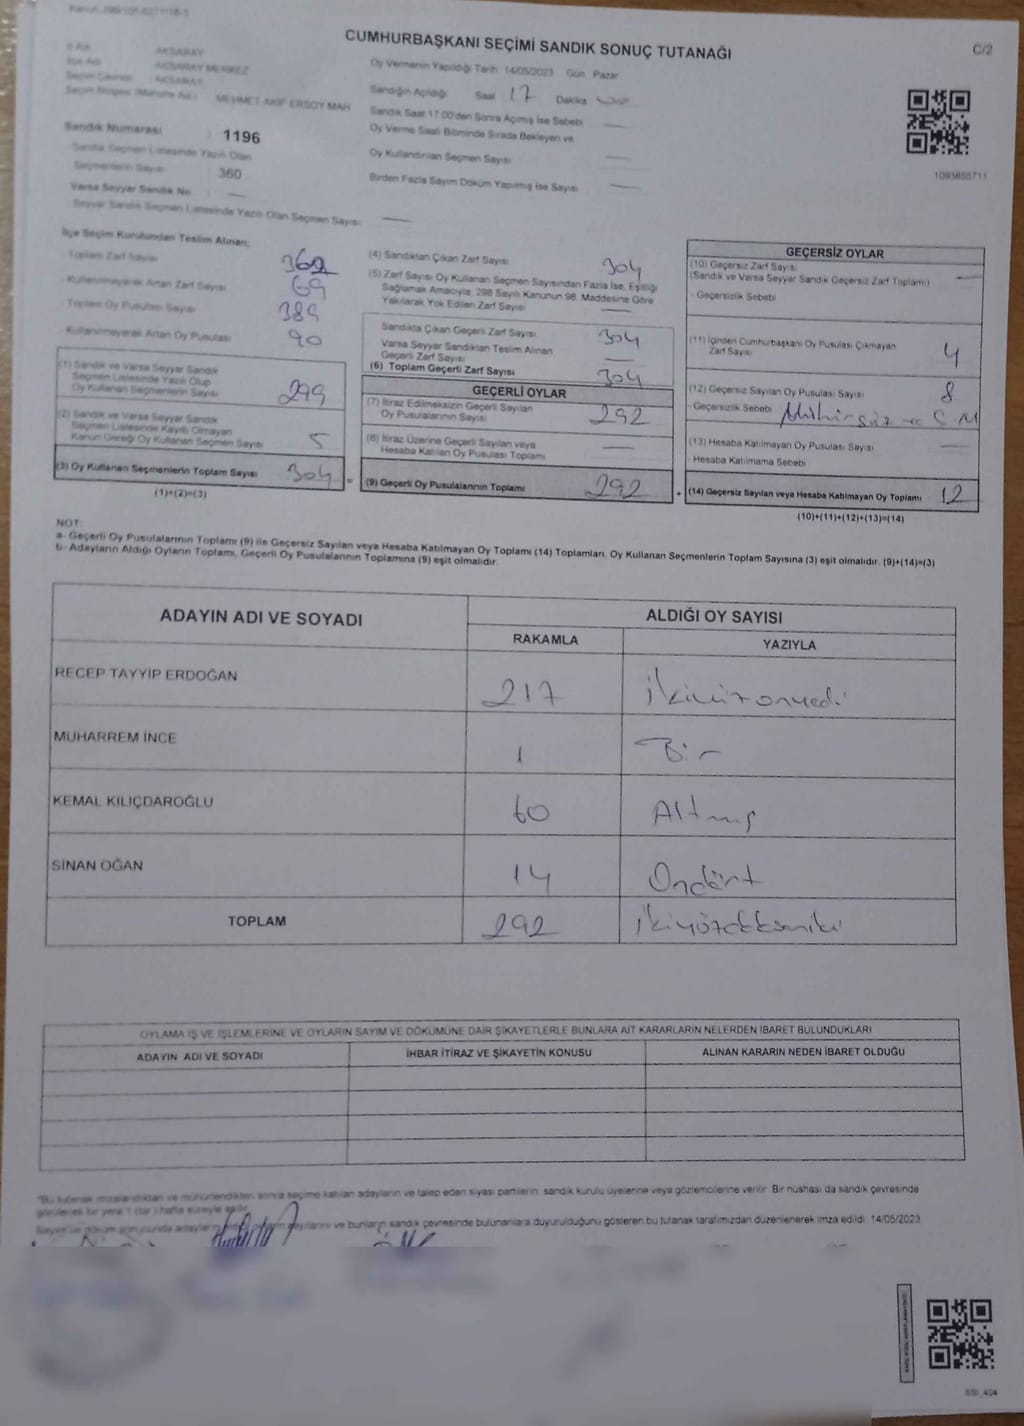 CUMHURBAŞKANI SEÇİMİ SANDIK SONUÇ TUTANAĞI
C/2
İl Adı AKSARAY
İlçe Adı AKSARAY MERKEZ
Seçim Çevresi AKSARAY
Seçim Bölgesi (Mahalle Ad.) MEHMET AKİF ERSOY MAH
Sandık Numarası : 1196
Sandık Seçmen Listesinde Yazılı Olan
Seçmenlerin Sayısı 360
Varsa Seyyar Sandık No
Seyyar Sandık Seçmen Listesinde Yazılı Olan Seçmen Sayısı
Oy Vermenin Yapıldığı Tarih : 14/05/2023 Gün Pazar
Sandığın Açıldığı Saat 17 Dakika
Sandık Saat 17.00'den Sonra Açımış İse Sebebi
Oy Verme Saati Bitiminde Sırada Bekleyen ve
Oy Kullandırılan Seçmen Sayısı
Birden Fazla Sayım Döküm Yapılmış İse Sayısı
1093855711
İlçe Seçim Kurulundan Teslim Alınan;
Toplam Zarf Sayısı
Kullanılmayarak Artan Zarf Sayısı 69
Toplam Oy Pusulası Sayısı
Kullanılmayarak Artan Oy Pusulası 90
(1) Sandık ve Varsa Seyyar Sandık
Seçmen Listesinde Yazılı Olup
Oy Kullanan Seçmenlerin Sayısı 299
(2) Sandık ve Varsa Seyyar Sandık
Seçmen Listesinde Kayıtlı Olmayan
Kanun Gereği Oy Kullanan Seçmen Sayısı 5
(3) Oy Kullanan Seçmenlerin Toplam Sayısı 304 =
(1)+(2)=(3)
(4) Sandıktan Çıkan Zarf Sayısı 304
(5) Zarf Sayısı Oy Kullanan Seçmen Sayısından Fazla İse, Eşitliği
Sağlamak Amacıyla; 298 Sayılı Kanunun 98. Maddesine Göre
Yakılarak Yok Edilen Zarf Sayısı
Sandıkta Çıkan Geçerli Zarf Sayısı 304
Varsa Seyyar Sandıktan Teslim Alınan
Geçerli Zarf Sayısı
(6) Toplam Geçerli Zarf Sayısı 304
GEÇERLİ OYLAR
(7) İtiraz Edilmeksizin Geçerli Sayılan
Oy Pusulalarının Sayısı 292
(8) İtiraz Üzerine Geçerli Sayılan veya
Hesaba Katılan Oy Pusulası Toplamı
(9) Geçerli Oy Pusulalarının Toplamı 292 +
GEÇERSİZ OYLAR
(10) Geçersiz Zarf Sayısı
(Sandık ve Varsa Seyyar Sandık Geçersiz Zarf Toplamı)
- Geçersizlik Sebebi
(11) İçinden Cumhurbaşkanı Oy Pusulası Çıkmayan
Zarf Sayısı 4
(12) Geçersiz Sayılan Oy Pusulası Sayısı 8
- Geçersizlik Sebebi Mühürsüz ve Ç.M
(13) Hesaba Katılmayan Oy Pusulası Sayısı
- Hesaba Katılmama Sebebi
(14) Geçersiz Sayılan veya Hesaba Katılmayan Oy Toplamı 12
(10)+(11)+(12)+(13)=(14)
NOT:
a- Geçerli Oy Pusulalarının Toplamı (9) ile Geçersiz Sayılan veya Hesaba Katılmayan Oy Toplamı (14) Toplamları, Oy Kullanan Seçmenlerin Toplam Sayısına (3) eşit olmalıdır. (9)+(14)=(3)
b- Adayların Aldığı Oyların Toplamı, Geçerli Oy Pusulalarının Toplamına (9) eşit olmalıdır.
ADAYIN ADI VE SOYADI ALDIĞI OY SAYISI
RAKAMLA YAZIYLA
RECEP TAYYİP ERDOĞAN 217 ikiyüzonyedi
MUHARREM İNCE 1 Bir
KEMAL KILIÇDAROĞLU 60 Altmış
SİNAN OĞAN 14 Ondört
TOPLAM 292
OYLAMA İŞ VE İŞLEMLERİNE VE OYLARIN SAYIM VE DÖKÜMÜNE DAİR ŞİKAYETLERLE BUNLARA AİT KARARLARIN NELERDEN İBARET BULUNDUKLARI
ADAYIN ADI VE SOYADI İHBAR İTİRAZ VE ŞİKAYETİN KONUSU ALINAN KARARIN NEDEN İBARET OLDUĞU
"Bu tutanak imzalandıktan ve mühürlendikten sonra seçime katılan adayların ve talep eden siyasi partilerin sandık kurulu üyelerine veya gözlemcilerine verilir. Bir nüshası da sandık çevresinde
görülecek bir yere 1 (bir) hafta süreyle asılır.
Sayım ve döküm sonucunda adayların sayılarını ve bunların sandık çevresinde bulunanlara duyurulduğunu gösteren bu tutanak tarafımızdan düzenlenerek imza edildi. 14/05/2023
SSI_404